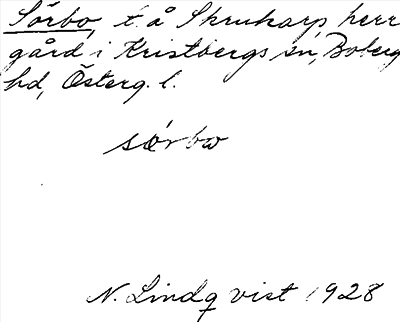 Sörbo, t. å Skrukarp, herr
gård i Kristbergs sn, Boberg
hd, Österg. l.
sœ́rbω
N. Lindqvist 1928